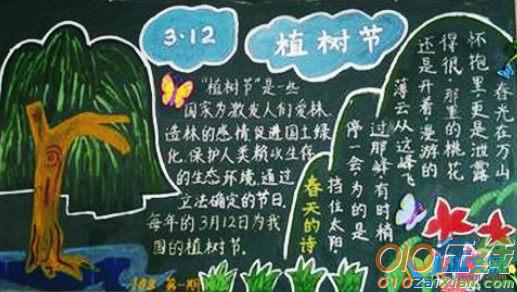 3·12
植树节
"植树节"是一些
国家为激发人们爱林.
造林的感情促进国土绿
化.保护人类赖以生存
的生态环境.通过
立法确定的节日.
每年的3月12日为我
国的植树节.
春天的诗
春光在万山
怀抱里更是泄露
得很那里的桃花
还是开着漫游的
薄云从这峰飞
过那峰有时稍
停一会为的是
挡住太阳
第一期
QQ在线
010zaixian.com